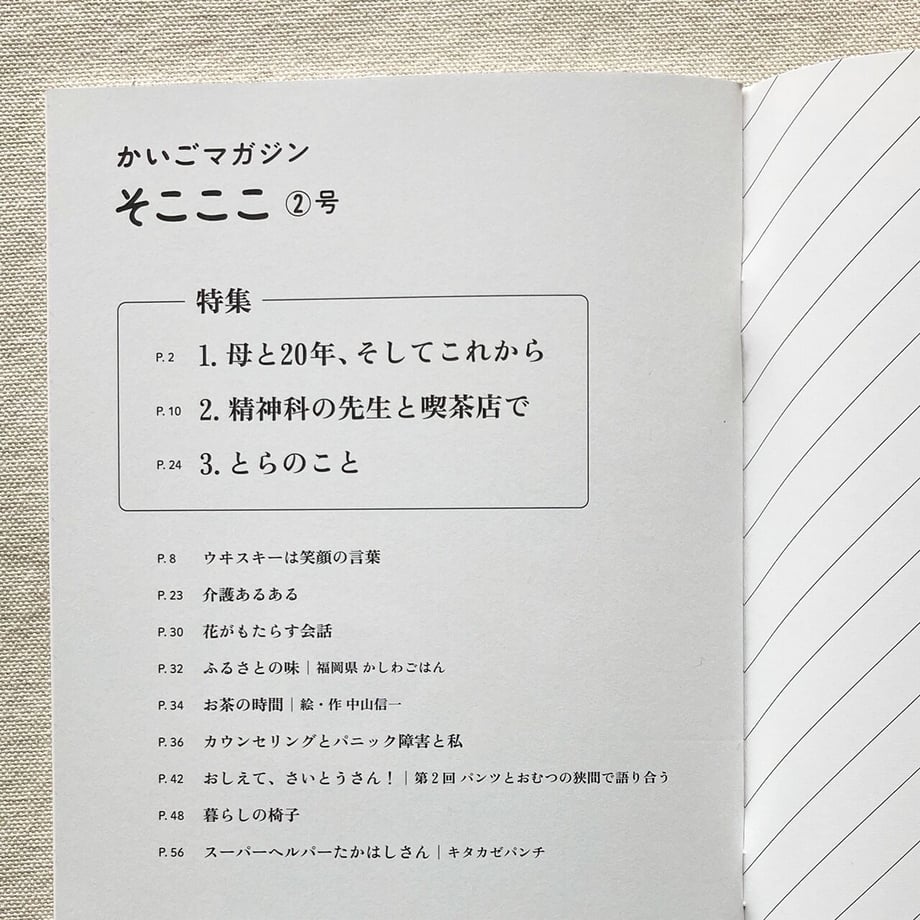 かいごマガジン
そこここ ②号
特集
P.2 1. 母と20年、そしてこれから
P.10 2. 精神科の先生と喫茶店で
P.24 3. とらのこと
P.8 ウヰスキーは笑顔の言葉
P.23 介護あるある
P.30 花がもたらす会話
P.32 ふるさとの味|福岡県 かしわごはん
P.34 お茶の時間|絵・作 中山信一
P.36 カウンセリングとパニック障害と私
P.42 おしえて、さいとうさん!|第2回 パンツとおむつの狭間で語り合う
P.48 暮らしの椅子
P.56 スーパーヘルパーたかはしさん|キタカゼパンチ